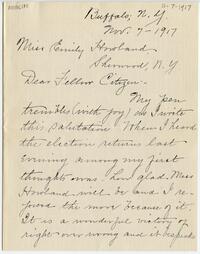 11-7-1917
Buffalo, N.Y.
Nov. 7-1917
Miss Emily Howland
Sherwood, N.Y
Dear Fellow Citizen-
My pen
trembles (with joy) as I write
this salutation. When I heard
the election returns last
evening among my first
thoughts was, how glad Miss
Howland will be and I re-
joiced the more because of it.
It is a wonderful victory of
right over wrong and it bespeaks